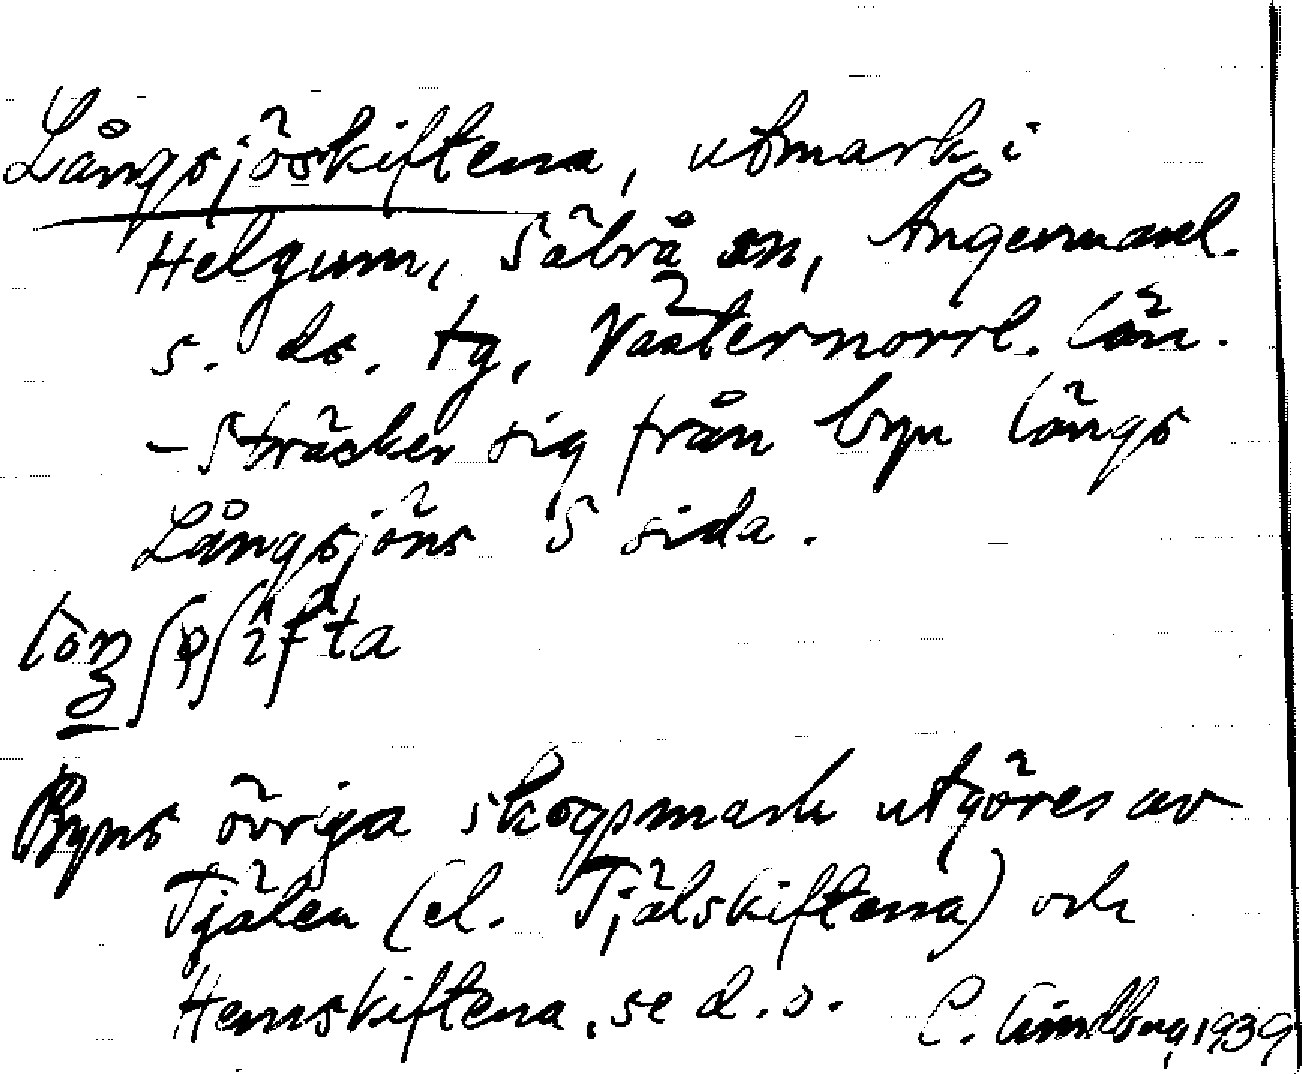 Långsjöskiftena, utmark i
Helgum, Säbrå sn, Ångermanl.
s. ds. tg, Västernorrl. län.
– Sträcker sig från byn längs
Långsjöns S sida.
Byns övriga skogsmark utgöres av
Tjälen (el. Tjälskiftena) och
Hemskiftena, se d. o. C. Lindberg 1939